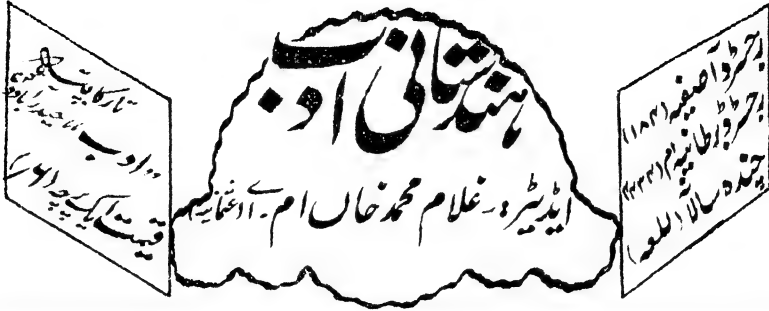 رجسٹرڈ آصفیہ (۱۸۴)
رجسٹرڈ برطانیہ ام (۴۲۳۳)
چندہ سالانہ (للعہ)
ہندستانی ادب
ایڈیٹر:۔ غلام محمد خاں ام۔ اے عثمانیہ
تار کا پتہ
"ادب" حیدرآباد
قیمت ایک پرچہ (۶/)